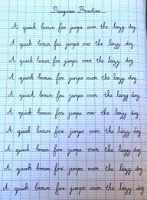 Pangram Practice
A quick brown fox jumps over the lazy dog
A quick brown fox jumps over the lazy dog
A quick brown fox jumps over the lazy dog
A quick brown fox jumps over the lazy dog
A quick brown fox jumps over the lazy dog
A quick brown fox jumps over the lazy dog
A quick brown fox jumps over the lazy dog
A quick brown fox jumps over the lazy dog
A quick brown fox jumps over the lazy dog
A quick brown fox jumps over the lazy dog